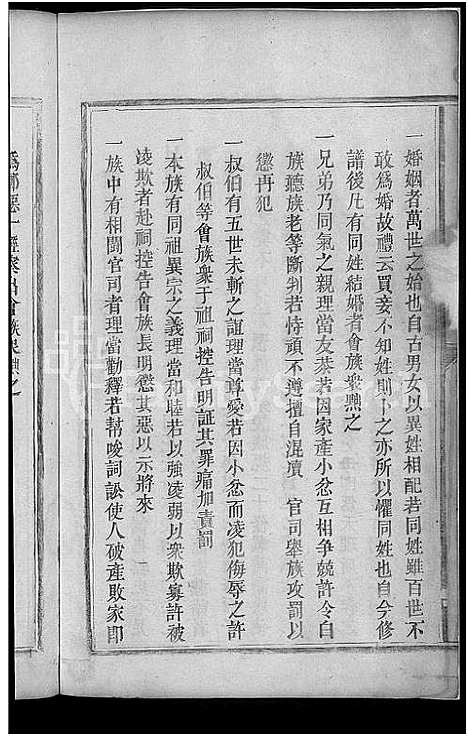 一婚姻者萬世之始也自古男女以異姓相配若同姓雖百世不
敢爲婚故禮云買妾不知姓則卜之亦所以懼同姓也自今修
譜後凡有同姓結婚者會族衆黜之
一兄弟乃同氣之親理當友恭若因家產小忿互相争競許令白
族聽族老等斷判若恃頑不遵擅自混瀆 官司舉族攻罰以
懲再犯
一叔伯有五世未斬之誼理當尊愛若因小忿而凌犯侮辱之許
叔伯等會族衆于祖祠控告明証其罪痛加責罰
一本族有同祖異宗之義理當和睦若以強凌弱以衆欺寡許被
凌欺者赴祠控告會族長明懲其惡以示將來
一族中有相鬪官司者理當勸釋若幫唆詞訟使人破產敗家卽